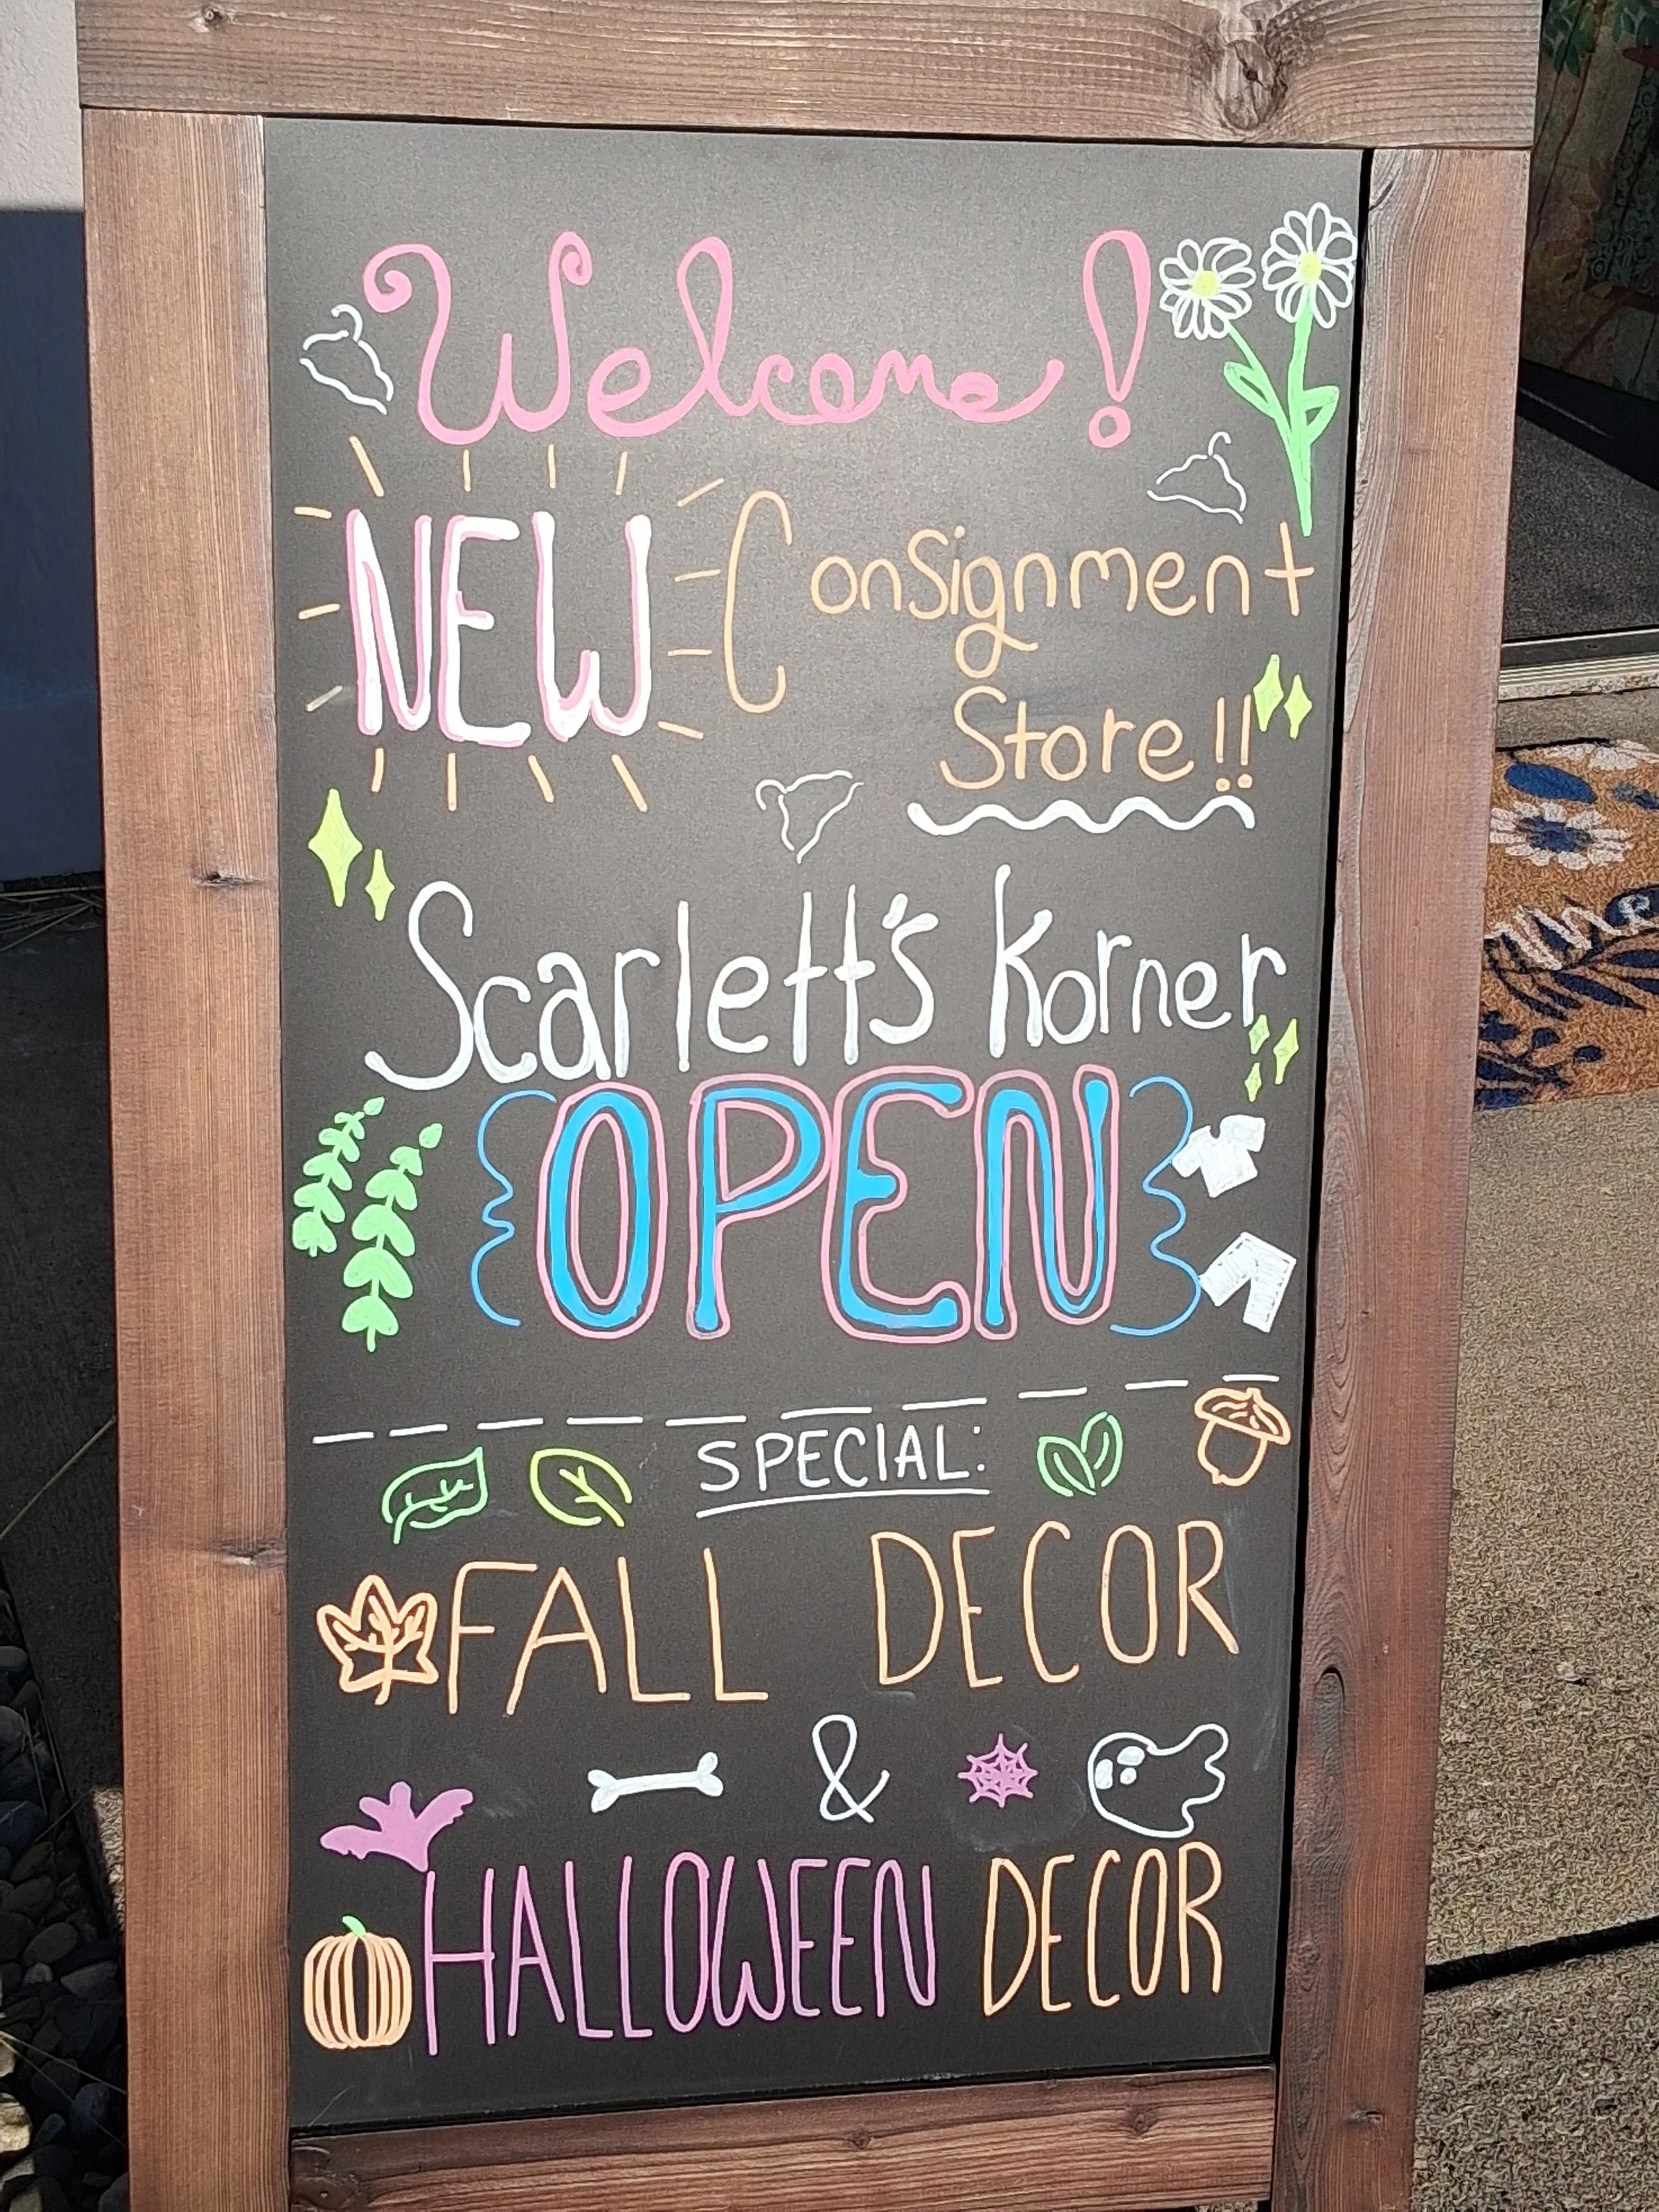 Welcome!
NEW Consignment
Store!!
Scarlett's Korner
OPEN
SPECIAL:
FALL DECOR
&
HALLOWEEN DECOR